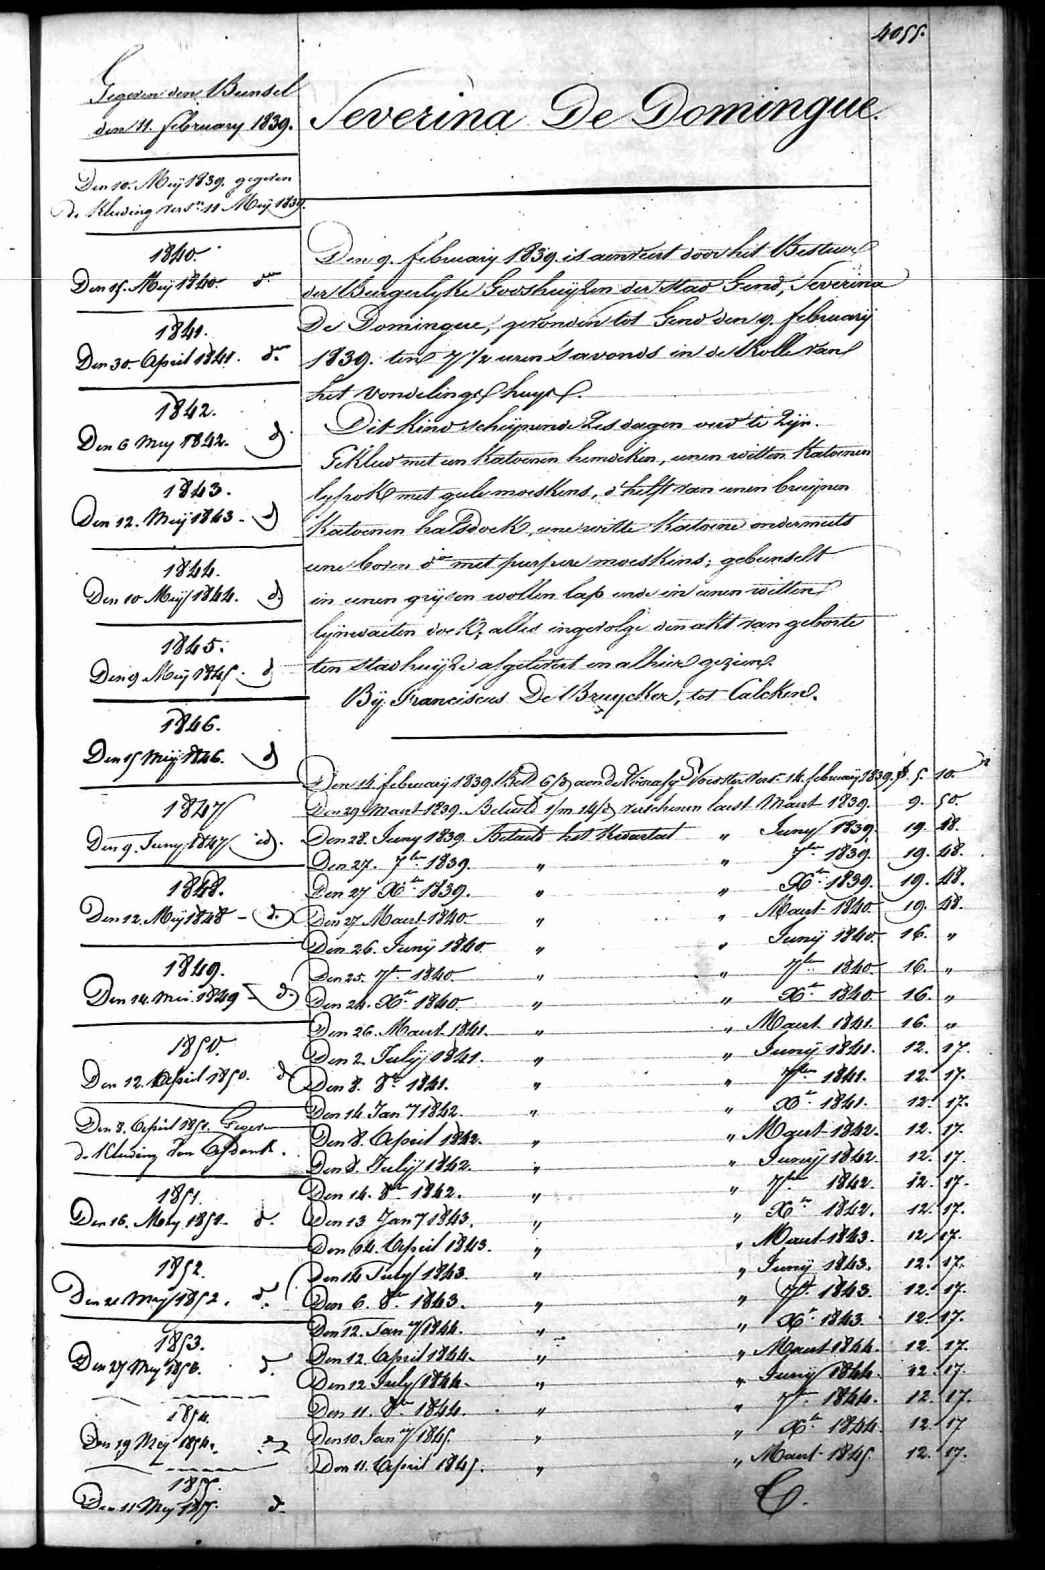 4055.
Severina De Domingue.
Gegeven den Bunsel
den 11. february 1839.
Den 10. Meij 1839. gegeven
de Kleeding vers.n 11 Meij 1839.
1840.
Den 15. Meij 1840. do
1841.
Den 30. April 1841. do
1842.
Den 6 Meij 1842. d
1843.
Den 12. Meij 1843 - d
1844.
Den 10 Meij 1844. d
1845.
Den 9 Meij 1845. d
1846.
Den 15 Meij 1846. d
1847
Den 9. Juny 1847 id.
1848.
Den 12. Meij 1848 - d.
1849.
Den 14. Mei 1849 - d.
1850.
Den 12. April 1850. d
Den 8. April 1851. Gegeven
de Kleeding van
1851.
Den 16. Mey 1851. d.
1852.
Den 21 Mey 1852. d.
1853.
Den 27 Mey 1853. d.
1854.
Den 19 Mey 1854.
1855.
Den 11 Mey 1855. d.
Den 9. february 1839. is aenveert door het Bestuur
der Burgerlyke Godshuijzen der stad Gend, Severina
De Domingue, gevonden tot Gend den 9. february
1839. ten 7 1/2 uren s'avonds in de Rolle van
het Vondelings huys.
Dit Kind schijnende Zes dagen oud te Zijn.
Gekleed met een Katoenen hemdeken, eenen witten Katoenen
lyfrok met geele moeskens, d'helft van eenen bruijnen
Katoenen halsdoek, eene witte Katoene ondermuts
eene boven do met purpere moeskens; gebunselt
in eenen grijsen wollen lap ende in eenen witten
lijnwaeten doek; alles ingevolge den akt van geborte
ten stadhuijze afgelevert en alhier gezien.
Bij Franciscus De Bruycker, tot Calcken.
Den 14. february 1839. Bet.d 6/d aen de Voedster vers. 14. february 1839. f. 5. 10.
Den 29 Maart 1839. Betaeld 1/m 14/d verschenen laest Maart 1839. 9. 50.
Den 28. Juny 1839. Betaeld het Kwartael " Juny 1839. 19. 48.
Den 27. 7ber 1839. " " 7ber 1839. 19. 48.
Den 27 Xber 1839. " " Xber 1839. 19. 48.
Den 27 Maert 1840. " " Maert 1840. 19. 48.
Den 26. Junij 1840 " " Junij 1840. 16. "
Den 25. 7br 1840. " " 7ber 1840. 16. "
Den 24. Xbr 1840. " " Xbr 1840 16. "
Den 26. Maert 1841. " " Maert 1841. 16. "
Den 2. Julij 1841. " " Junij 1841. 12. 17.
Den 8. 8br 1841. " " 7ber 1841. 12. 17.
Den 14 Jan.y 1842. " " Xbr 1841. 12. 17.
Den 8. April 1842. " " Maert 1842. 12. 17.
Den 8. Julij 1842. " " Junij 1842. 12. 17.
Den 14. 8br 1842. " " 7ber 1842. 12. 17.
Den 13 Jan.y 1843. " " Xber 1842. 12. 17.
Den 14. April 1843. " " Maert 1843. 12. 17.
Den 14 July 1843. " " Junij 1843. 12. 17.
Den 6. 8br 1843. " " 7br 1843. 12. 17.
Den 12. Jan.y 1844. " " Xbr 1843. 12. 17.
Den 12. April 1844. " " Maert 1844. 12. 17.
Den 12 July 1844. " " Junij 1844. 12. 17.
Den 11. 8br 1844. " " 7br 1844. 12. 17.
Den 10 Jan.y 1845. " " Xber 1844. 12. 17
Den 11. April 1845. " " Maert 1845. 12. 17.